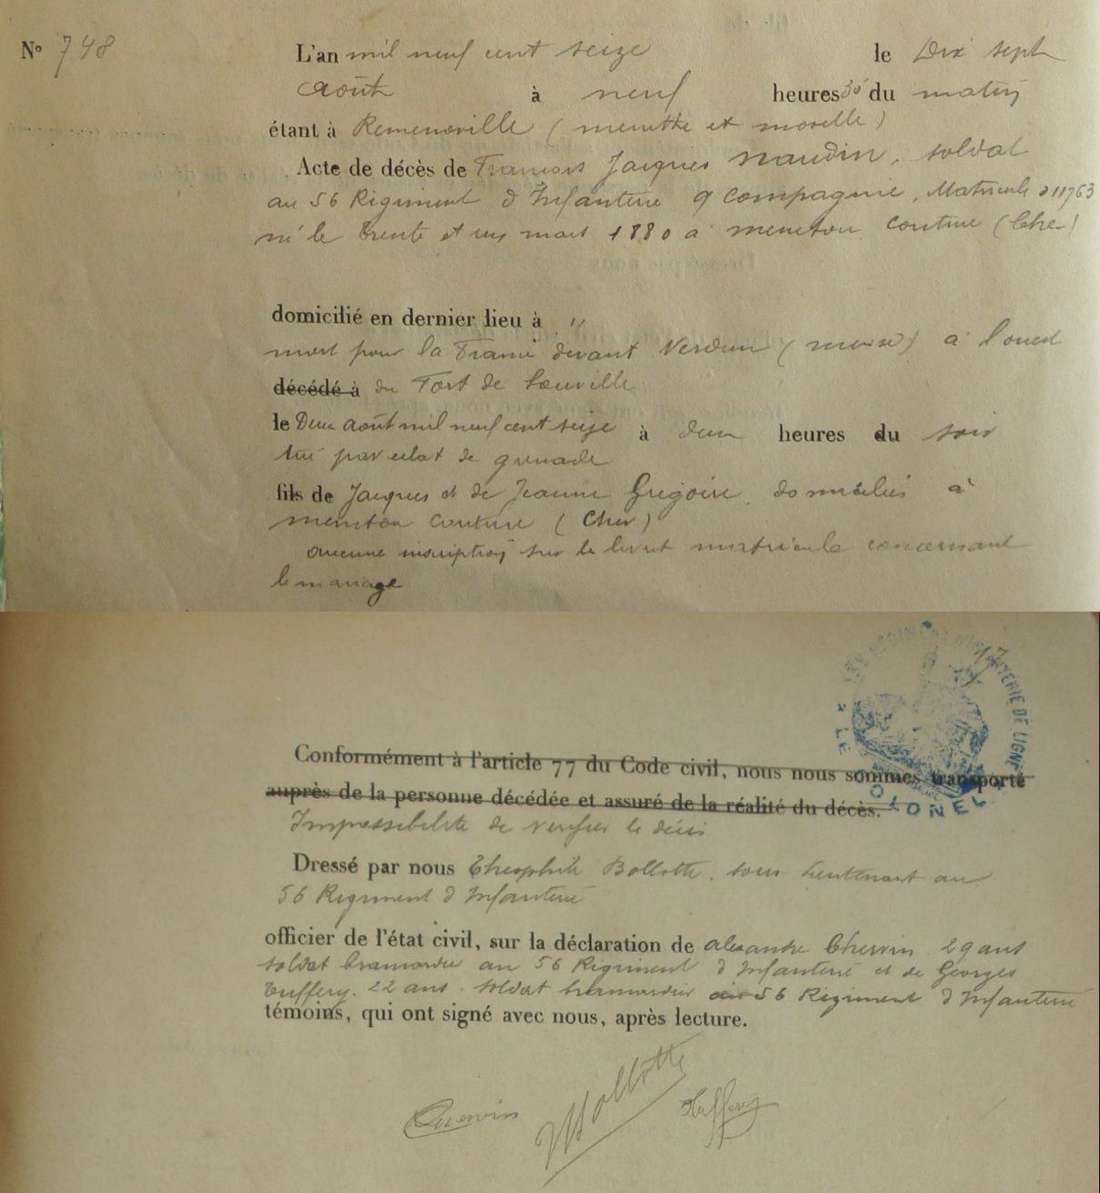 N° 748
L'an mil neuf cent seize le Dix sept
Août à neuf heures 30 du matin
étant à Remenoville (meurthe et moselle)
Acte de décès de François Jacques Naudin, soldat
au 56 Régiment d'Infanterie 9 compagnie, Matricule 011763
né le trente et un mars 1880 à menetou couture (Cher)
domicilié en dernier lieu à "
mort pour la France devant Verdun (meuse) à l'ouest
décédé à du Fort de Souville
le Deux août mil neuf cent seize à deux heures du soir
tué par eclat de grenade
fils de Jacques et de Jeanne Grégoire, domiciliés à
menetou couture (Cher)
aucune inscription sur le livret matricule concernant
le mariage
INFANTERIE DE LIGNE
LE COLONEL
Conformément à l'article 77 du Code civil, nous nous sommes transporté
auprès de la personne décédée et assuré de la réalité du décès.
Impossibilité de verifier le décès
Dressé par nous Théophile Bollotte, sous lieutenant au
56 Régiment d'Infanterie
officier de l'état civil, sur la déclaration de alexandre Chervin 29 ans
soldat brancardier au 56 Régiment d'Infanterie et de Georges
Tuffery, 22 ans soldat brancardier au 56 Régiment d'Infanterie
témoins, qui ont signé avec nous, après lecture.
Chervin Bollotte Tuffery